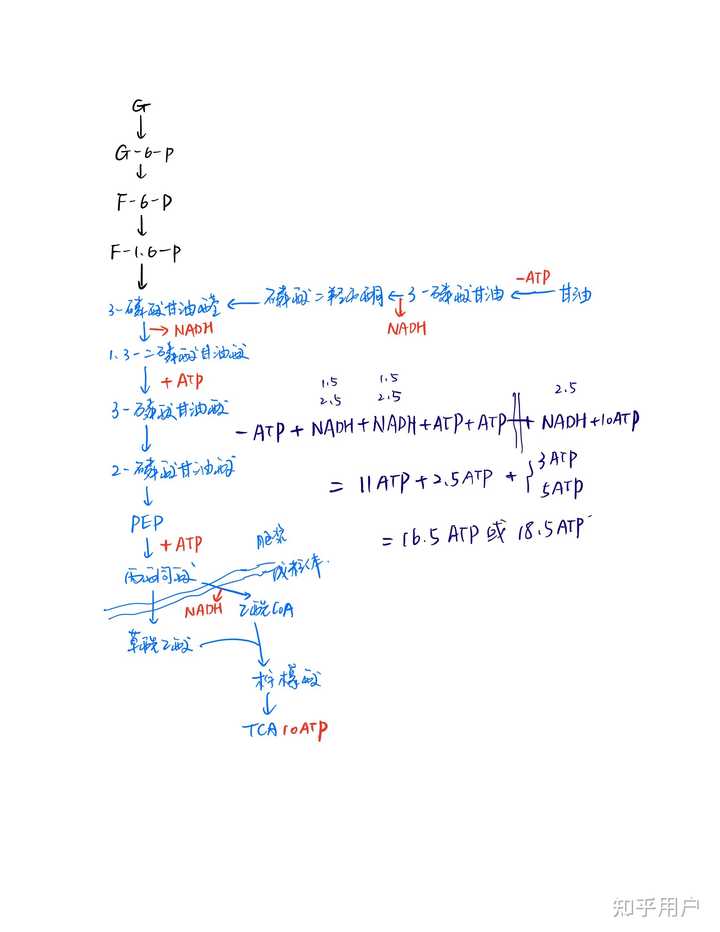 G
G-6-P
F-6-P
F-1.6-P
3-磷酸甘油醛 ← 磷酸二羟丙酮 ← 3-磷酸甘油 ← 甘油
-ATP
NADH
NADH
1.3-二磷酸甘油酸
+ATP
3-磷酸甘油酸
2-磷酸甘油酸
PEP
+ATP
丙酮酸
胞浆
线粒体
NADH
乙酰CoA
草酰乙酸
柠檬酸
TCA 10ATP
1.5 1.5
2.5 2.5 2.5
-ATP + NADH + NADH + ATP + ATP + NADH + 10ATP
= 11ATP + 2.5ATP + { 3ATP
5ATP
= 16.5 ATP 或 18.5 ATP
知乎用户